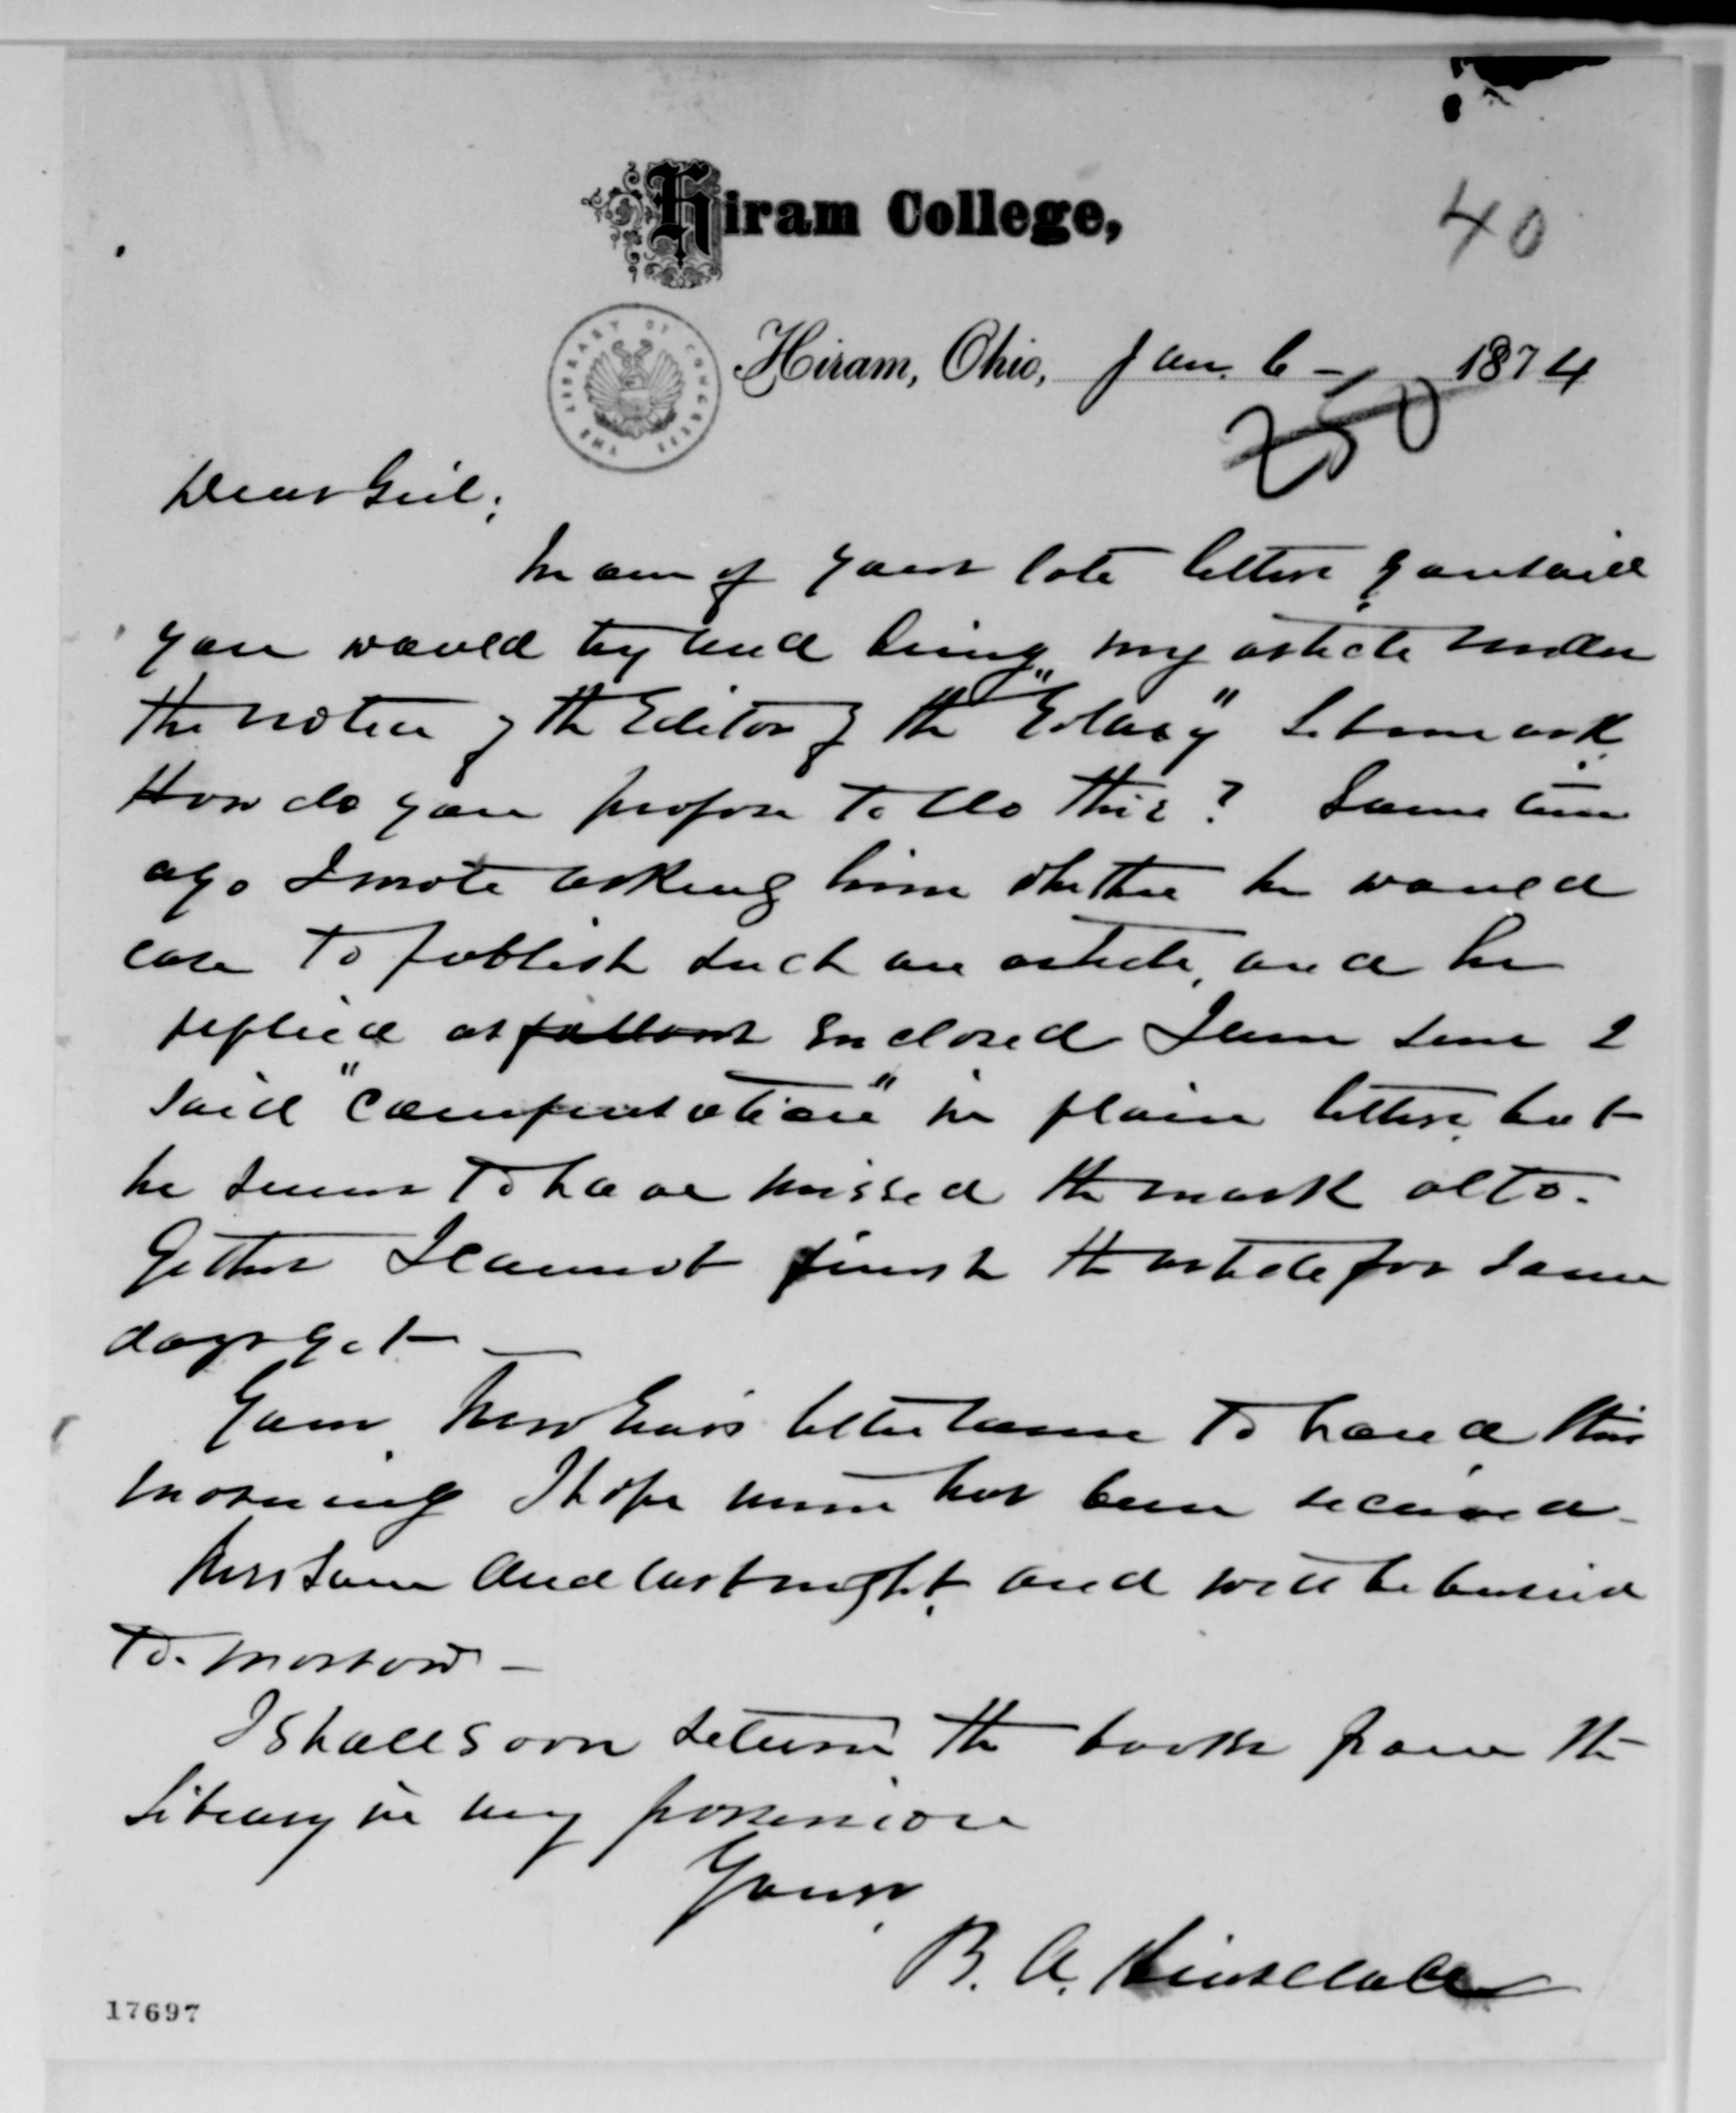 40
Hiram College,
THE LIBRARY OF CONGRESS
Hiram, Ohio, Jan. 6 - 1874
250
Dear Gen'l;
In one of your late letters you said
you would try and bring my article under
the notice of the Editor of the "Galaxy"
How do you propose to do this? Some time
ago I wrote asking him whether he would
care to publish such an article, and he
replied as follows enclosed I am sure I
said "compensation" in plain letters, but
he seems to have missed the mark alto-
gether I cannot finish the article for some
days yet —
Your New Year's letter came to hand this
morning I hope mine has been received -
died last night, and will be buried
to-morrow -
I shall soon return the books from the
Library in my possession
Yours,
B. A. Hinsdale
17697